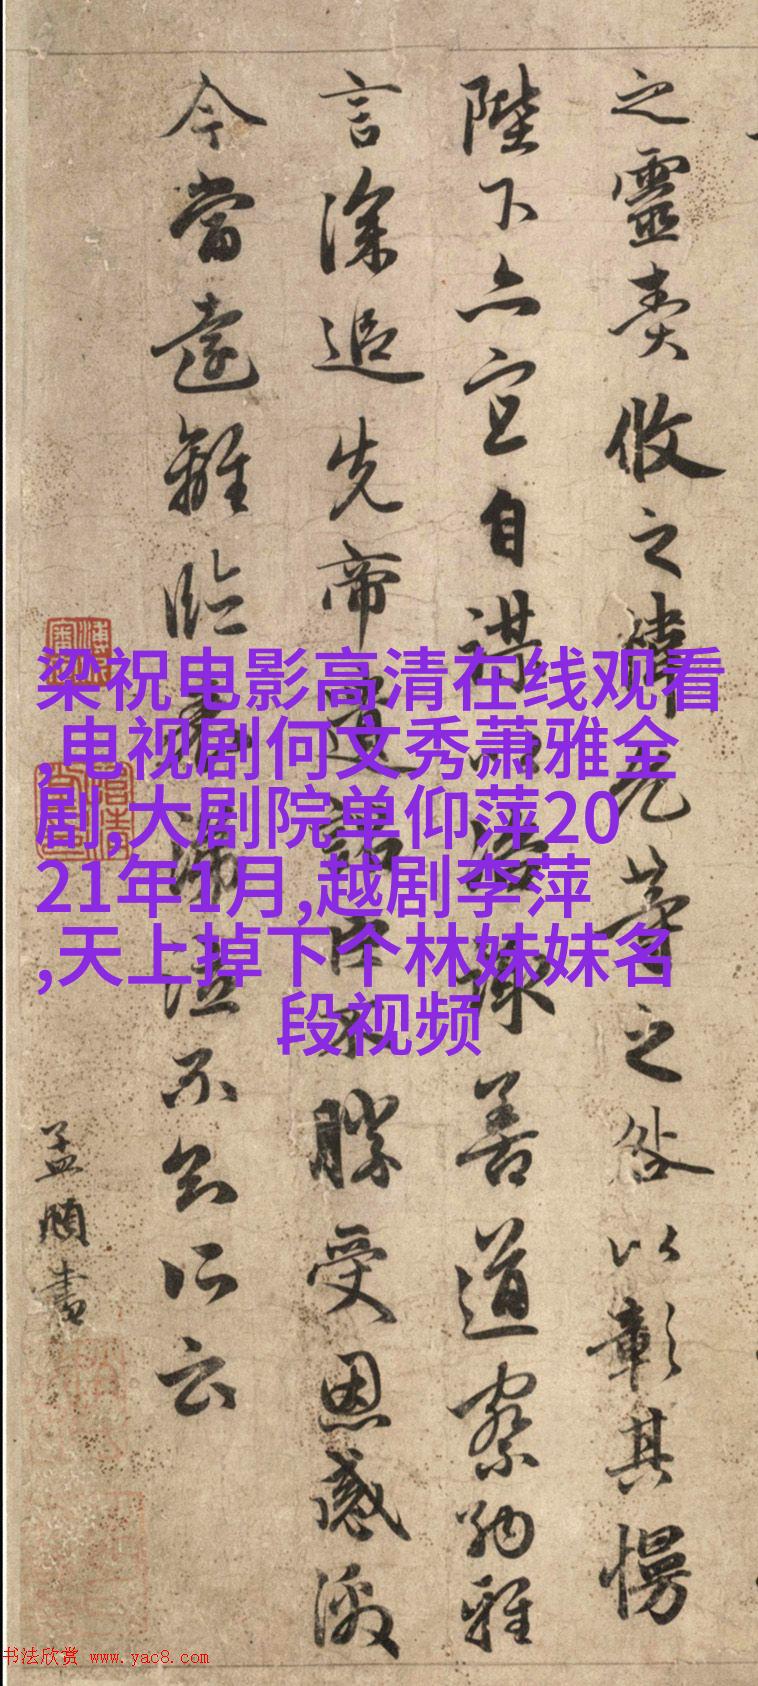 之靈責攸之禕允等之咎以彰其慢
陛下亦宜自謀以諮諏善道察納雅
言深追先帝遺詔臣不勝受恩感激
今當遠離臨表涕泣不知所云
孟頫書
梁祝电影高清在线观看
,电视剧何文秀萧雅全
剧,大剧院单仰萍20
21年1月,越剧李萍
,天上掉下个林妹妹名
段视频
书法欣赏 www.yac8.com